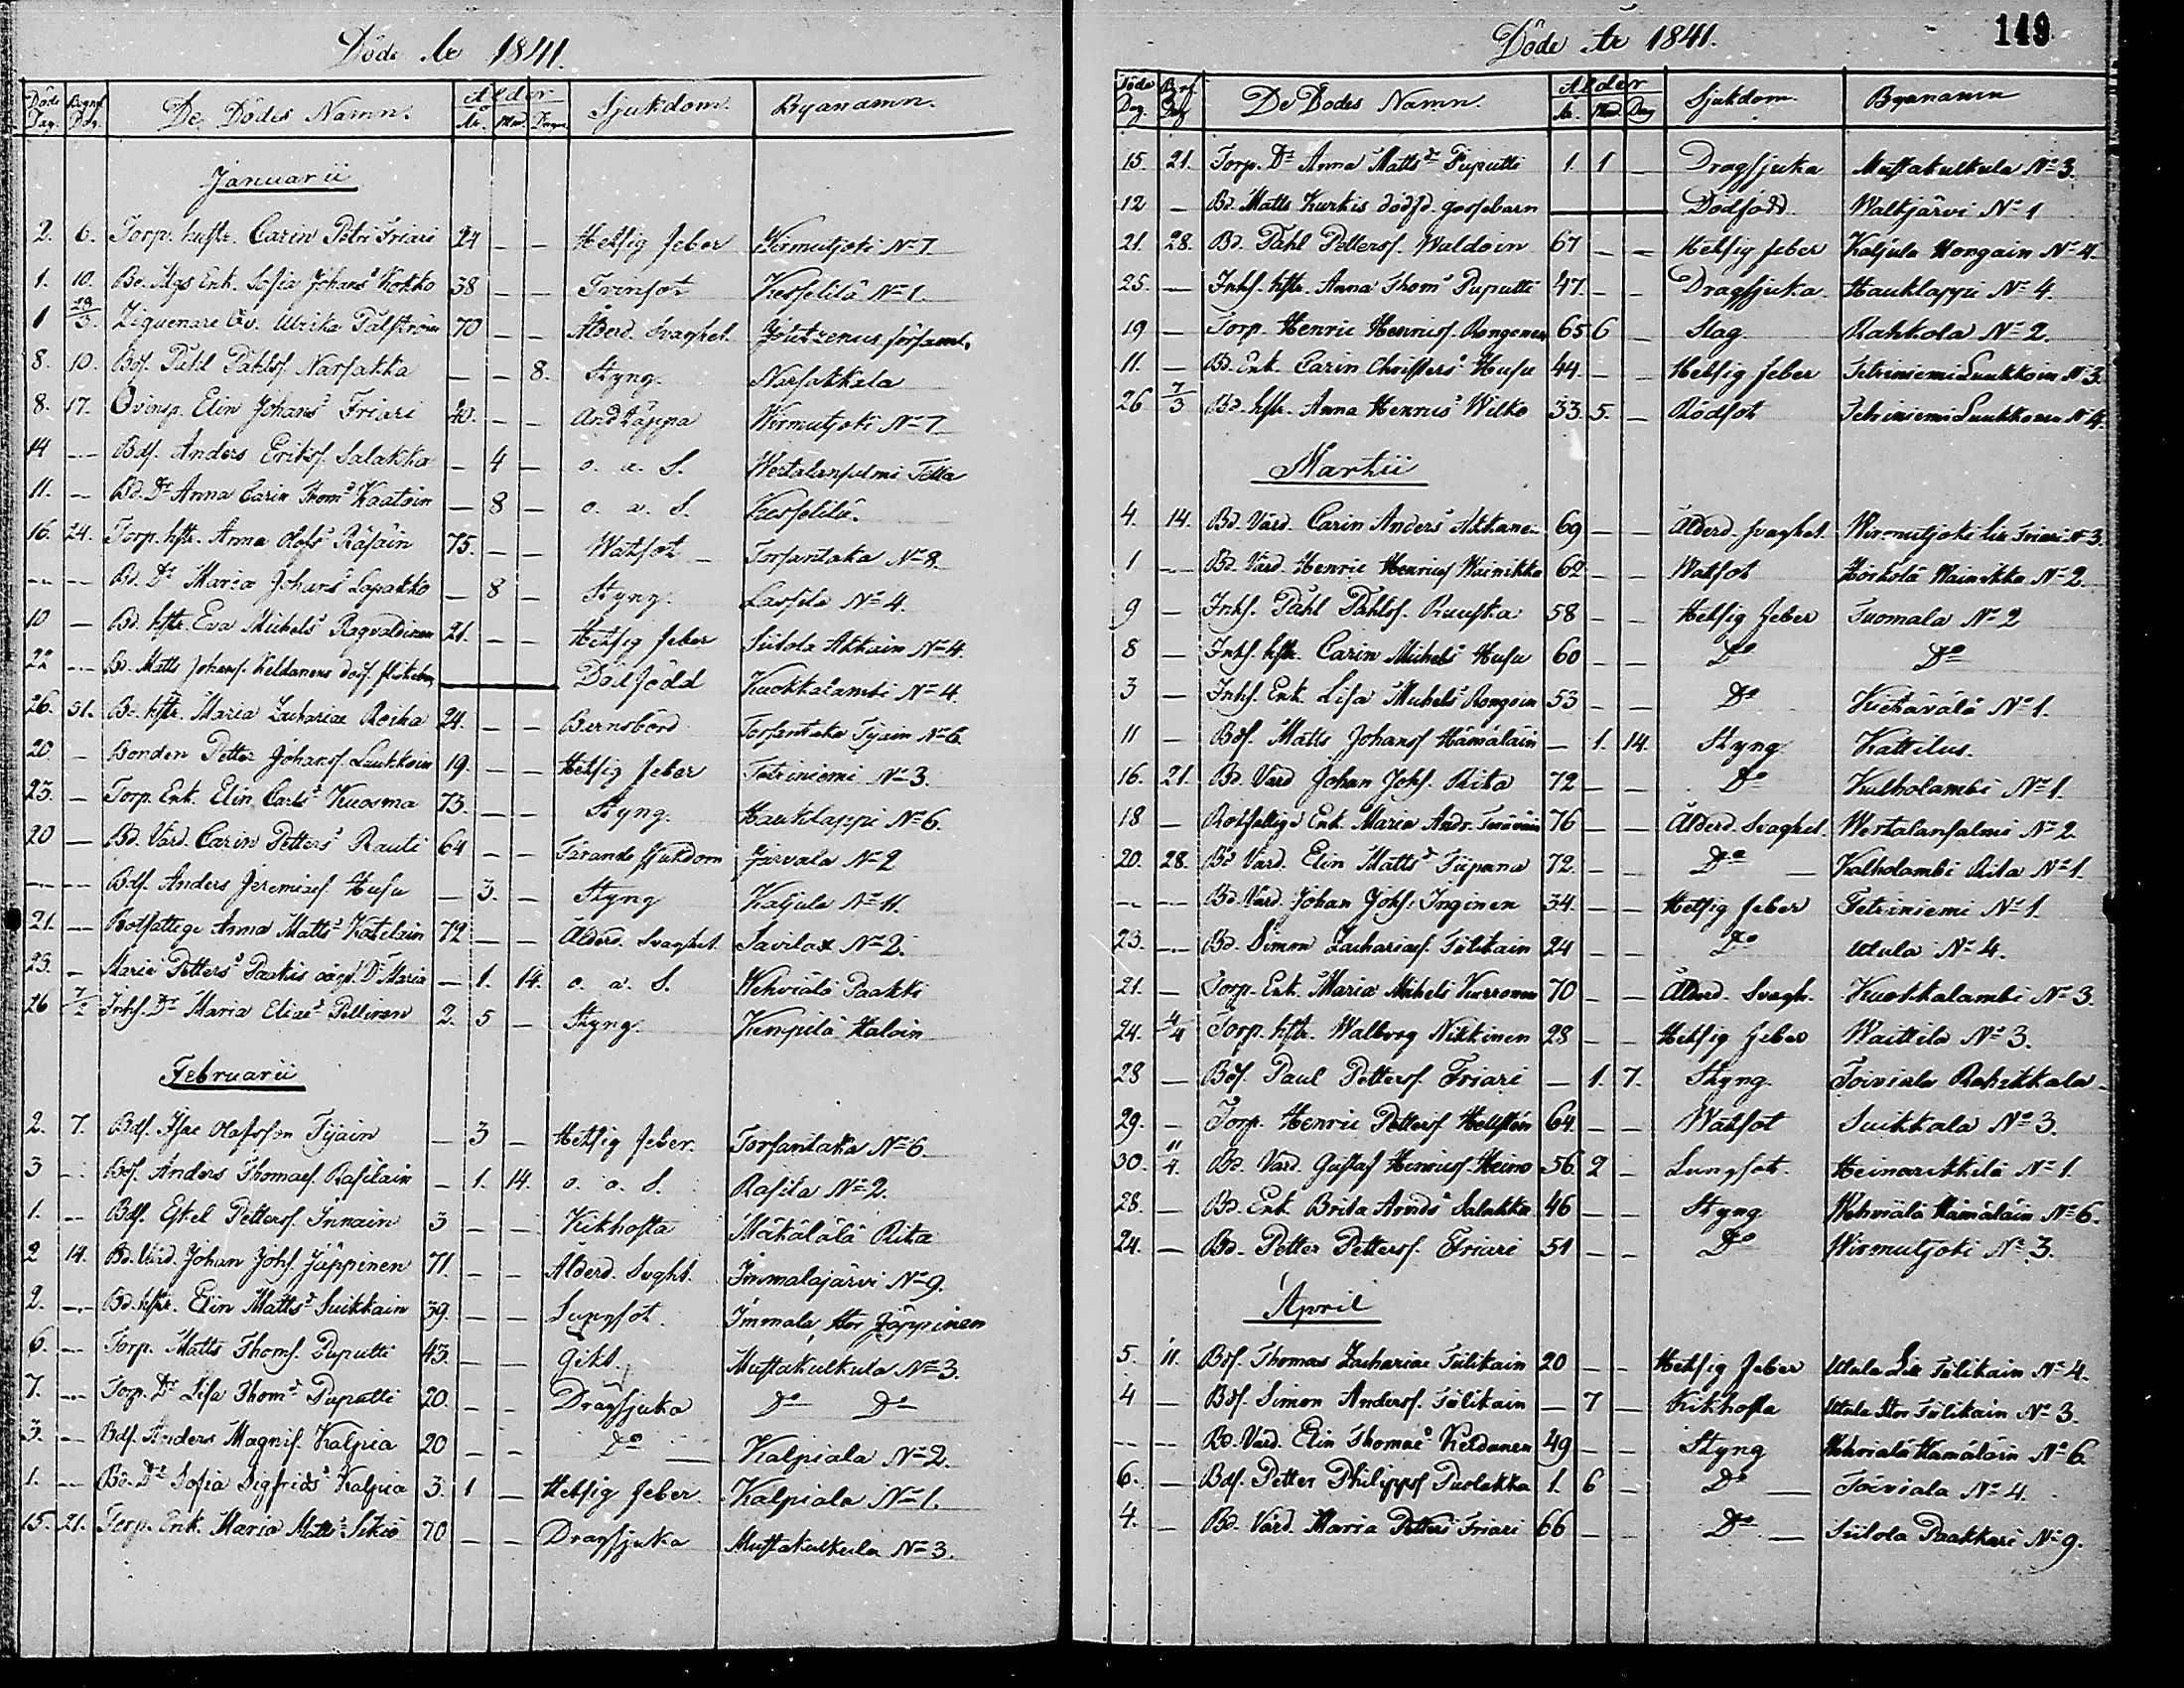 Döde År 1841.
Döde Dag. Begraf. Dag. De Dödes Namn. Ålder År. Mån. Dagar Sjukdom. Byanamn.
Januarii
2. 6. Torp. hustr. Carin Petri Friari 24 - - Hetsig feber Wirmutjoki No 7.
1. 10. Bd. Mgs Enk. Sofia Johans Kokko 38 - - Tvinsot Kesselilä No 1.
1 28/3. Ziguenare Qv. Ulrika Palström 70 - - Ålderd. Svaghet. Joutzenus församl.
8. 10. Bdf. Påhl Påhlsf. Narsakka - - 8. Styng. Narsakkala
8. 17. Qvinsp. Elin Johans Friari 40. - - Andtäppa Wirmutjoki No 7
14 - Bdf. Anders Eriksf. Salakka - 4 - o. a. S. Westalansalmi Tella
11. - Bd. Dr Anna Carin Thoms Kaatoin - 8 - o. a. S. Kesselilä.
16. 24. Torp. hstr. Anna Olofs Räsäin 75. - - Watsot Torsantaka No 8.
- - Bd. Dr Maria Johans Lapakko - 8 - Styng. Lassila No 4.
10 - Bd. hstr. Eva Michels Ragvaldinen 21. - - Hetsig feber Siitola Akkain No 4.
22 - Bd. Matts Johansf. Keldanens dödf. flickebarn Dödfödd Kuokkalambi No 4.
26. 31. Bd. hstr. Maria Zachariae Roiha 24. - - Barnsbörd Torsantaka Tijain No 6.
20 - Bonden Petter Johansf. Luukkoin 19. - - Hetsig feber Tetriniemi No 3.
23. - Torp. Enk. Elin Carls Kuosma 73. - - Styng. Hauklappi No 6.
20 - Bd. Värd. Carin Petters Rauti 64 - - Tärande sjukdom Järvala No 2
- - Bdf. Anders Jeremiaef. Husu - 3. - Styng Kaljula No 11.
21. - Rotfattige Anna Matts Katilain 72 - - Ålderd. Svaghet. Savilax No 2.
23. - Maria Petters Paakis oägt. Dr Maria - 1. 14. o. a. S. Wehviälä Paakki
26 7/2 Inhs. Dr Maria Eliae Pellinen 2. 5 - Styng. Kempilä Haloin
Februarii
2. 7. Bdf. Isac Olofsson Tijain - 3 - Hetsig feber. Torsantaka No 6.
3 - Bdf. Anders Thomaef. Rasilain - 1. 14. o. a. S. Rasila No 2.
1. - Bdf. Eskel Pettersf. Innain 3 - - Kikhosta Mäkälälä Rita
2 14. Bd. Värd. Johan Johsf. Jäppinen 71. - - Ålderd. Svght. Immalajärvi No 9.
2. - Bd. hstr. Elin Matts Suikkain 39. - - Lungsot. Immala Stor Jäppinen
6. - Torp. Matts Thomsf. Puputti 43. - - Gikt. Mustakulkula No 3.
7. - Torp. Dr Lisa Thoms Puputti 20. - - Dragsjuka Do Do
3. - Bdf. Anders Magnif. Kalpia 20 - - Do Kalpiala No 2.
1. - Bd. Dr Sofia Sigfrids Kalpia 3. 1 - Hetsig feber. Kalpiala No 1.
15. 21. Torp. Enk. Maria Matts Sikiö 70 - - Dragsjuka Mustakulkula No 3.
149
Döde År 1841.
Döde Dag. Begr. Dag De Dödes Namn. Ålder År. Mån. Dag Sjukdom. Byanamn
15. 21. Torp. Dr Anna Matts Puputti 1. 1 - Dragsjuka Mustakulkula No 3.
12 - Bd. Matts Kurkis dödfd. gossebarn Dödfödd Waltjärvi No 1
21. 28. Bd. Påhl Pettersf. Waldoin 67 - - Hetsig feber Kaljula Hongain No 4.
25. - Inhs. hstr. Anna Thoms Puputti 47. - - Dragsjuka. Hauklappi No 4.
19 - Torp. Henric Henricsf. Rongonen 65 6 - Slag Rahkola No 2.
11. - Bd. Enk. Carin Christers Husu 44. - - Hetsig feber Tetriniemi Luukkoin No 3.
26 7/3 Bd. hstr. Anna Henrics Wilko 33. 5. - Rödsot Tetriniemi Luukkonen No 4.
Martii
4. 14. Bd. Värd. Carin Anders Akkanen 69 - - Ålderd. svaghet. Wirmutjoki lill Friari No 3.
1 - Bd. Värd. Henric Henricsf Wainikka 62 - - Watsot Wainikka No 2.
9 - Inhs. Påhl Påhlsf. Ruuska 58 - - Hetsig feber Tuomala No 2
8 - Inhs. hstr. Carin Michels Husu 60 - - Do Do
3 - Inhs. Enk. Lisa Michels Rongoin 53 - - Do Kietävälä No 1.
11 - Bdf. Matts Johansf Hämäläin - 1. 14. Styng Kattilus.
16. 21. Bd. Värd Johan Johsf. Rita 72 - - Do Kalholambi No 1.
18 - Rotfattige Enk. Maria Andr. 76 - - Ålderd. Svaghet. Westalansalmi No 2.
20. 28. Bd Värd. Elin Matts Tiipana 72. - - Do Kalholambi Rita No 1.
- - Bd. Värd. Johan Johsf. Inginen 34. - - Hetsig feber Tetriniemi No 1.
23. - Bd. Simon Zachariaef. Tiilikain 24 - - Do Utula No 4.
21. - Torp. Enk. Maria Michels Kurronen 70 - - Ålderd. Svagh. Kuokkalambi No 3.
24. 4/4 Torp. hstr. Walborg Nikkinen 28 - - Hetsig feber Waittila No 3.
28 - Bdf. Paul Pettersf. Friari - 1. 7. Styng. Toiviala Rahikkala
29. - Torp. Henric Pettersf Hellstén 64. - - Watsot Suikkala No 3.
30. 11/4. Bd. Värd. Gustaf Henricsf. Heino 56. 2 - Lungsot. Heinarikkilä No 1.
28. - Bd. Enk. Brita Arvids Salakka 46 - - Styng Wehviälä Hämäläin No 6.
24. - Bd. Petter Pettersf. Friari 51 - - Do Wirmutjoki No 3.
April
5. 11. Bdf. Thomas Zachariae Tiilikain 20 - - Hetsig feber Utula Lill Tiilikain No 4.
4 - Bdf. Simon Andersf. Tiilikain - 7 - Kikhosta Utula Stor Tiilikain No 3.
- - Bd. Värd. Elin Thomae Keldanen 49 - - Styng Wehviälä Hämäläin No 6.
6. - Bdf. Petter Philippsf Puolakka 1. 6 - Do Toiviala No 4.
4. - Bd. Värd. Maria Petters Friari 66 - - Do Siitola Paakkari No 9.